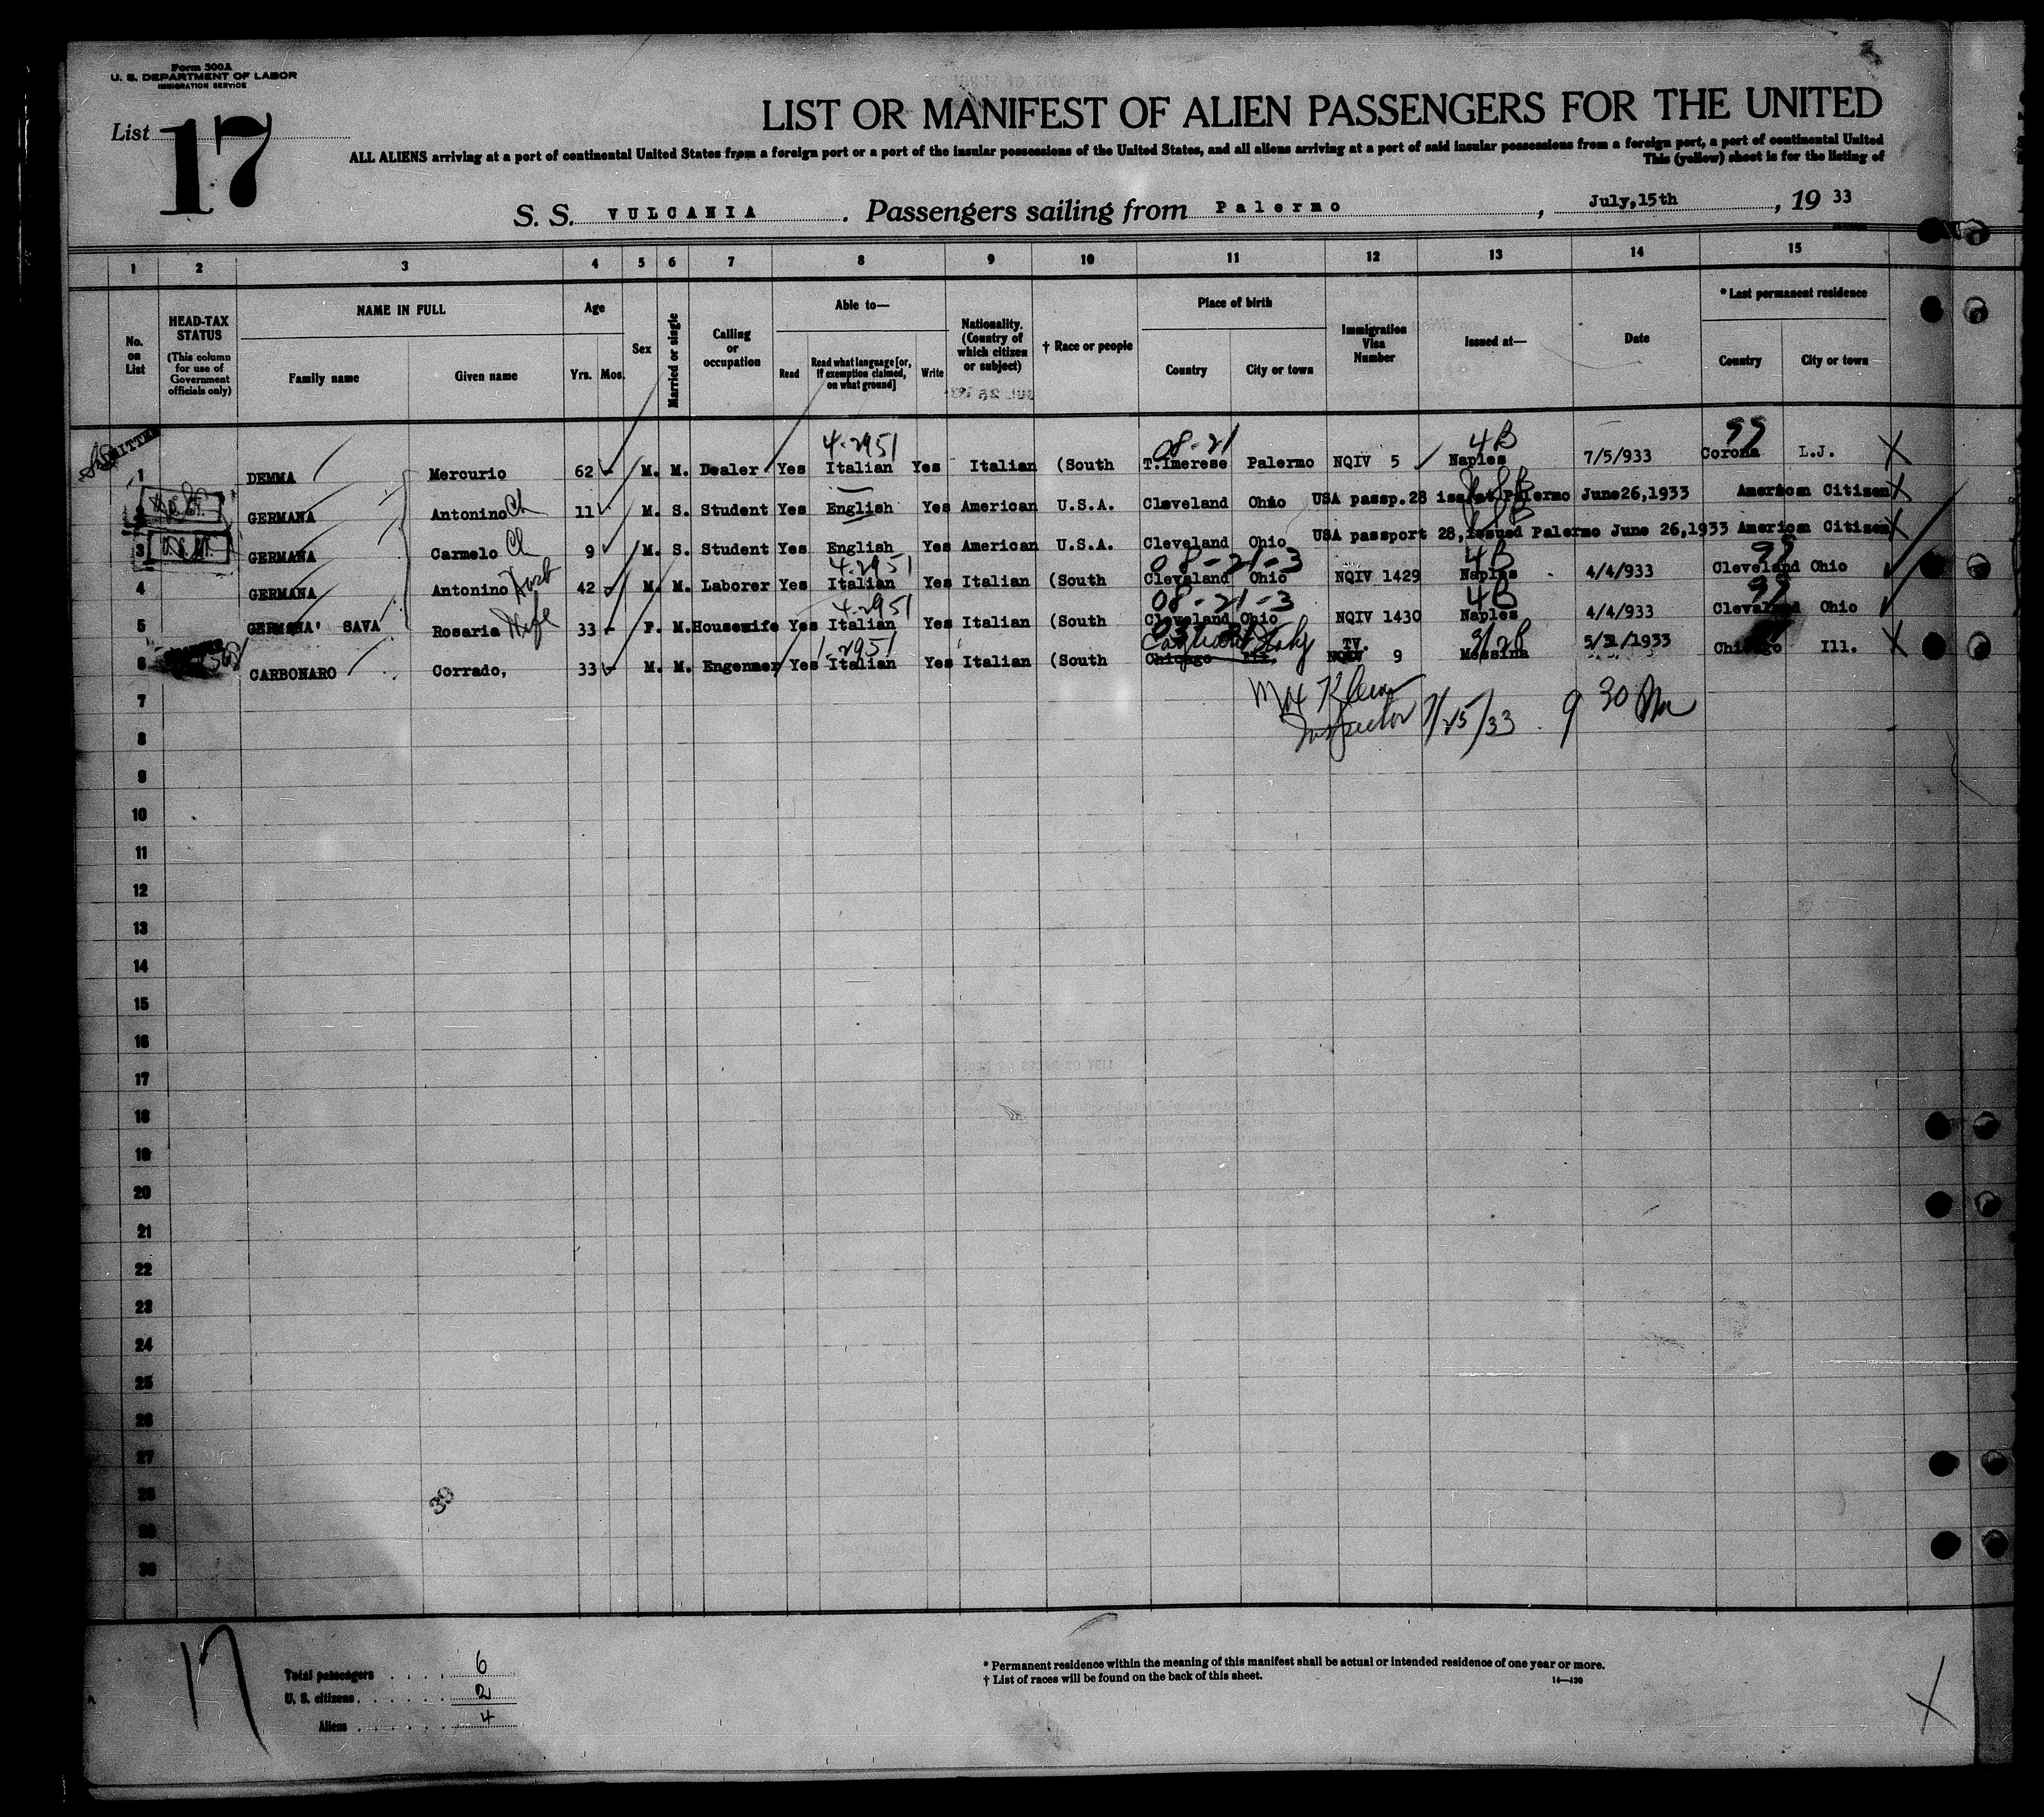 Form 500A
U. S. DEPARTMENT OF LABOR
IMMIGRATION SERVICE
List 17
LIST OR MANIFEST OF ALIEN PASSENGERS FOR THE UNITED
ALL ALIENS arriving at a port of continental United States from a foreign port or a port of the insular possessions of the United States, and all aliens arriving at a port of said insular possessions from a foreign port, a port of continental United
This (yellow) sheet is for the listing of
S. S. VULCANIA . Passengers sailing from Palermo , July,15th , 19 33
1 2 3 4 5 6 7 8 9 10 11 12 13 14 15
No. on List
HEAD-TAX STATUS (This column for use of Government officials only)
NAME IN FULL
Family name Given name
Age
Yrs. Mos.
Sex
Married or single
Calling or occupation
Able to—
Read Read what language [or, if exemption claimed, on what ground] Write
Nationality. (Country of which citizen or subject)
† Race or people
Place of birth
Country City or town
Immigration Visa Number
Issued at—
Date
* Last permanent residence
Country City or town
ADMITTED
4-2951 08-21 4B 99
1 DEMMA Mercurio 62 M. M. Dealer Yes Italian Yes Italian (South T.Imerese Palermo NQIV 5 Naples 7/5/933 Corona L.J. X
2 GERMANA Antonino Ch 11 M. S. Student Yes English Yes American U.S.A. Cleveland Ohio USA passp.28 iss.at Palermo June26,1933 American Citizen X
3 GERMANA Carmelo Ch 9 M. S. Student Yes English Yes American U.S.A. Cleveland Ohio USA passport 28,issued Palermo June 26,1933 American Citizen X
4-2951 08-21-3 4B 99
4 GERMANA Antonino Husb 42 M. M. Laborer Yes Italian Yes Italian (South Cleveland Ohio NQIV 1429 Naples 4/4/933 Cleveland Ohio
4-2951 08-21-3 4B 99
5 GERMANA' SAVA Rosaria Wife 33 F. M. Housewife Yes Italian Yes Italian (South Cleveland Ohio NQIV 1430 Naples 4/4/933 Cleveland Ohio
1-2951 Italy TV.
6 CARBONARO Corrado, 33 M. M. Engenmer Yes Italian Yes Italian (South Chicago Ill. NQIV 9 Messina 5/31/1933 Chicago Ill. X
7
Inspector 7/25/33 9 30 Am
8
9
10
11
12
13
14
15
16
17
18
19
20
21
22
23
24
25
26
27
28
29
30
39
17
Total passengers . . . . . 6
U. S. citizens . . . . . . 2
Aliens . . . . . . 4
* Permanent residence within the meaning of this manifest shall be actual or intended residence of one year or more.
† List of races will be found on the back of this sheet.
14—430
X